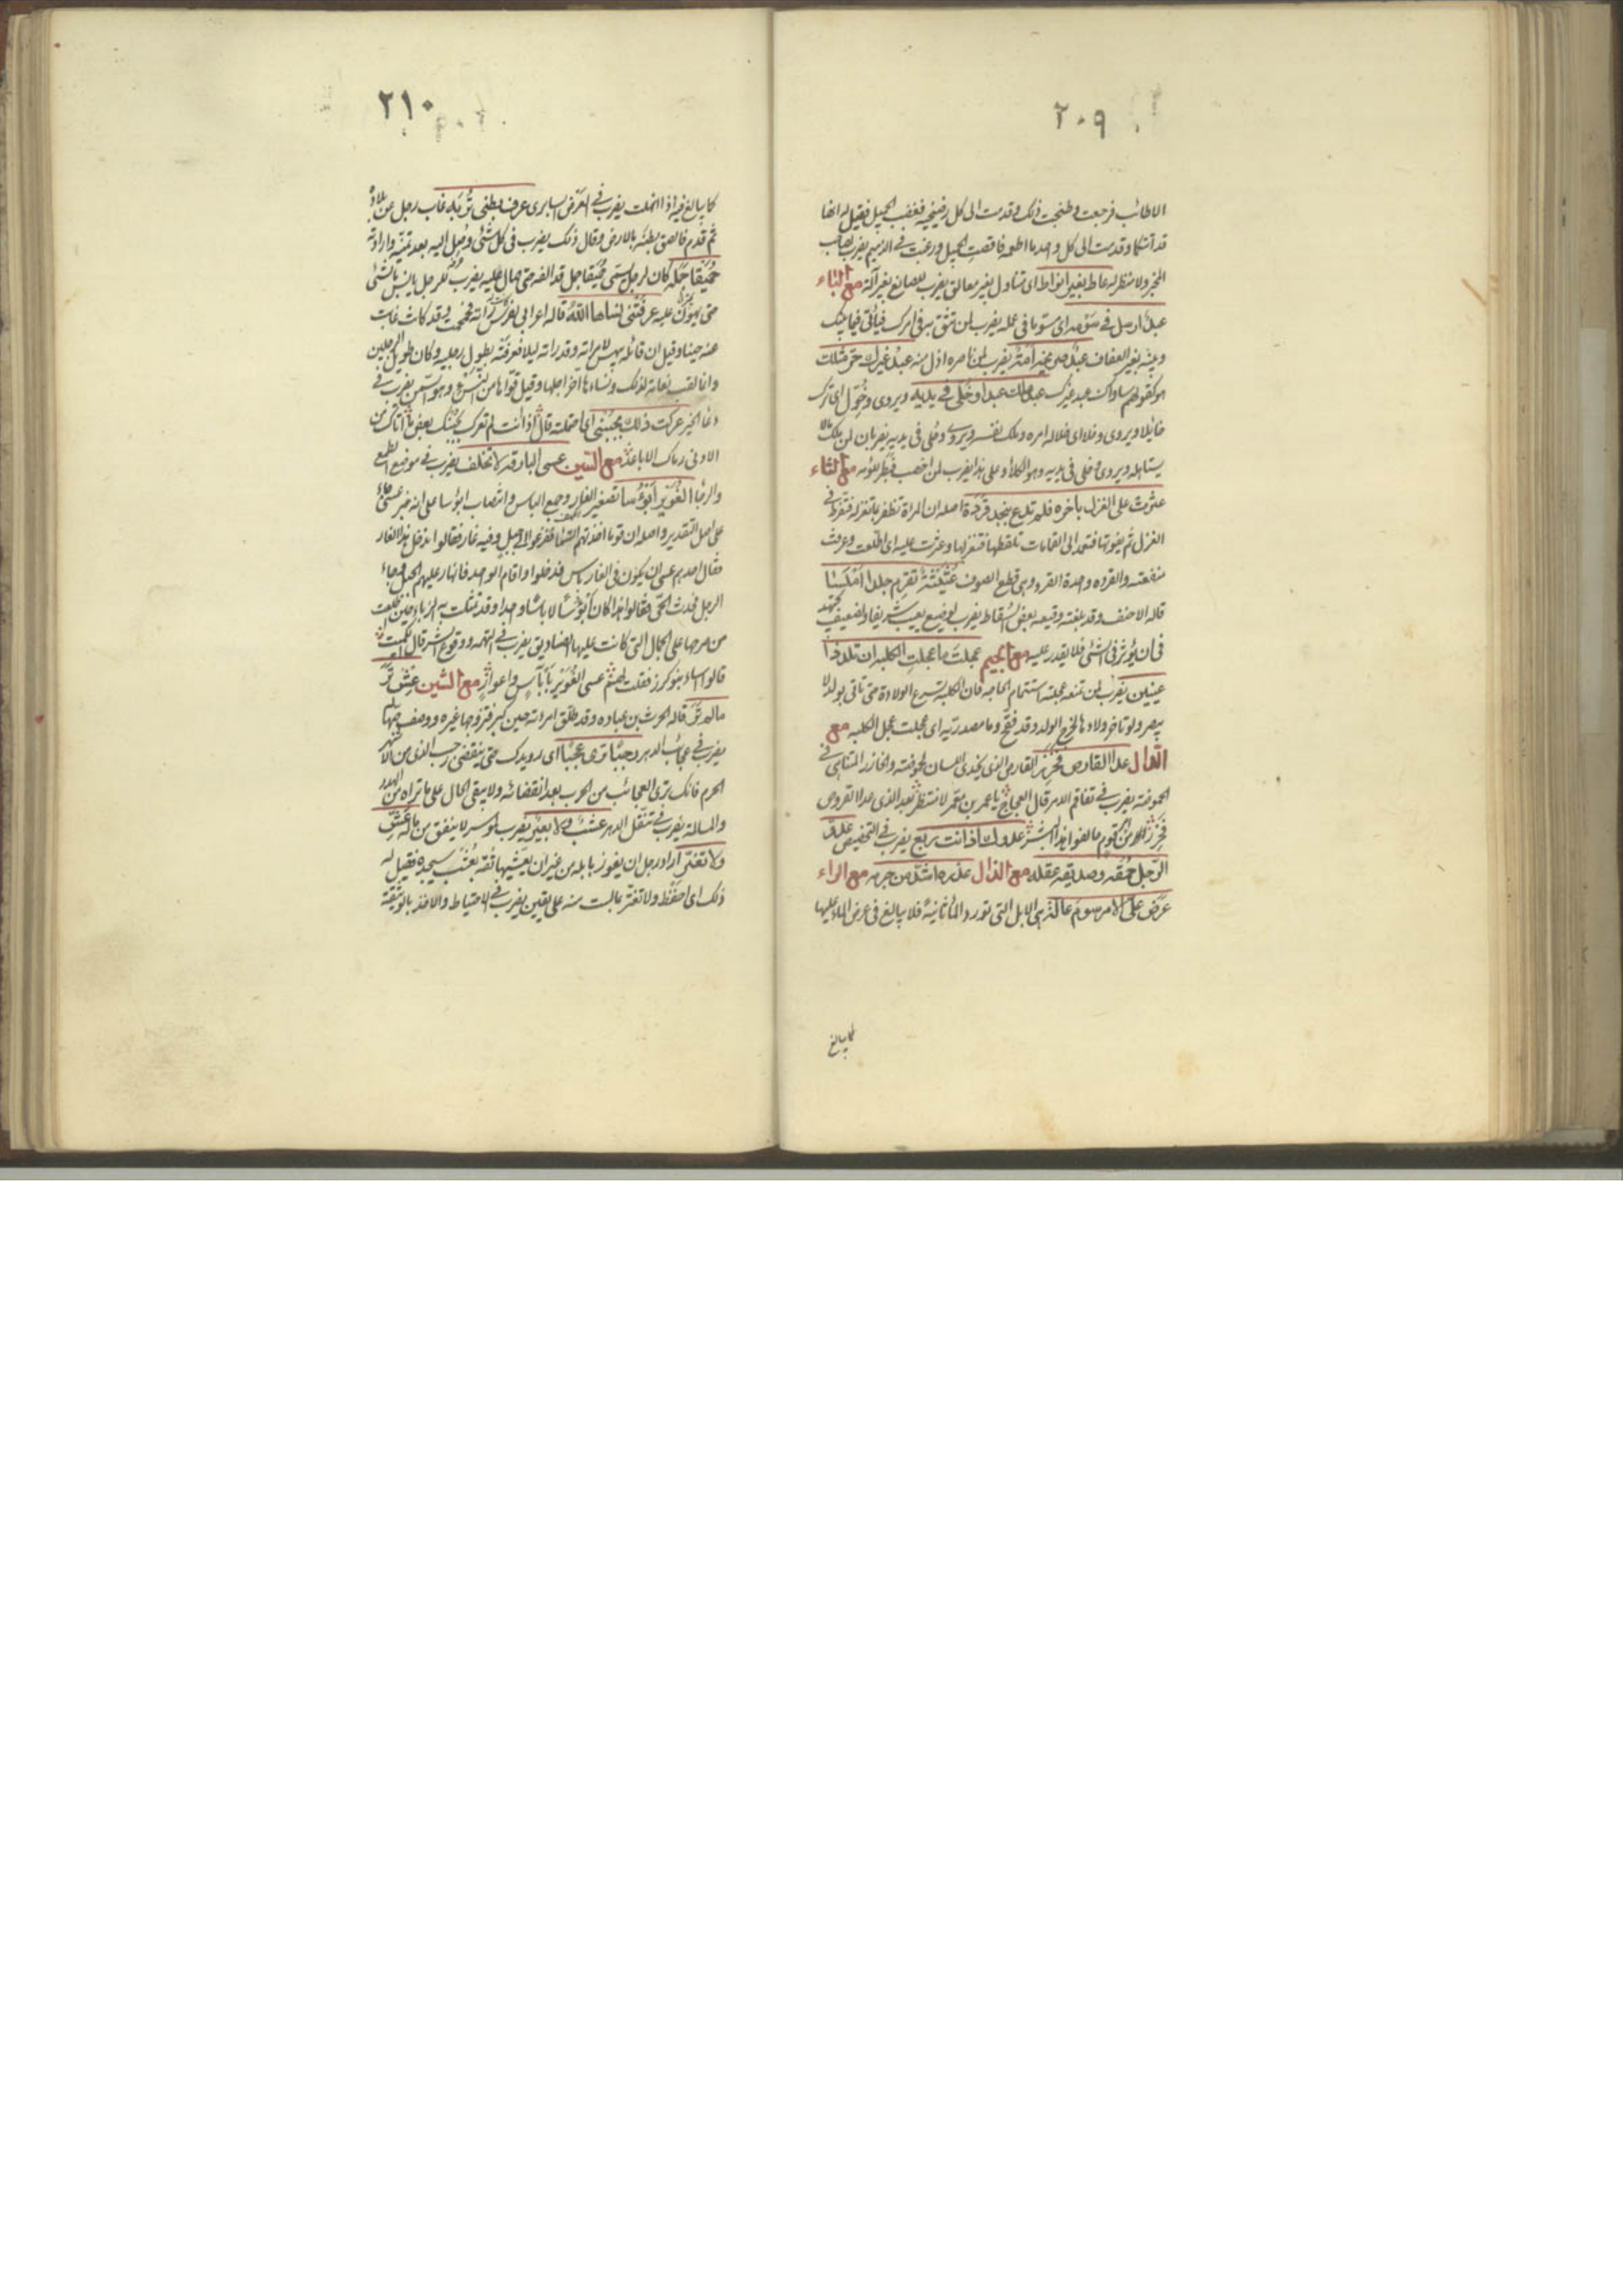 ٢٠٩
الاطائب فرجعت وطبخت ذلك وقدمت الى كل رضيخه فغضب الجميل فقيل له انها
قد آتتكما وقدمت الى كل واحد ما اطعمه فاقصت الجميل ورغبت فى الدميم يضرب
المخبر ولا منظر له عاط بغير انواط اى متناول بغير معاليق يضرب للصانع بغير آلة مع الباء
عبد ارسل فى سومه اى مستوما فى عمله يضرب لمن تثق به فى امرك فيأتى فيما بينك
وبينه بغير العفاف عبد صريخه امة يضرب لمن ناصره اذل منه عبد غيرك حر مثلك
هو كقولهم ساواك عبد غيرك عبد ملك عبدا وخلى فى يديه ويروى وخول اى ترك
يستاهله ويروى وخلى فى يديه وهو الكلأ وعلى هذا يضرب لمن اخصب فبطر للؤمه مع الثاء
عثرت على الغزل بأخره فلم تدع بنجد قردة اصله ان المرأة تظفر بما تغزله فتفرط فى
الغزل ثم يفوتها فتعمد الى القمامات تلقطها فتغزلها وعثرت عليه اى اطلعت وعرفت
منفعته والقرده واحدة القرد وهى قطع الصوف عثيثة تقرم جلدا املسا
قاله الاحنف وقد بلغته وقيعه بعض السقاط يضرب لوضيع يعيب شريفا ولضعيف يجتهد
فى ان يؤثر فى الشئ فلا يقدر عليه مع الجيم عجلت ما عجلت الكلبه ان تلد ذا
عينين يضرب لمن تمنعه عجلته استتمام الحاجه فان الكلبة تسرع الولادة حتى تأتى بولد لا
يبصر ولو تاخر ولادها لخرج الولد وقد فقح وما مصدريه اى عجلت عجل الكلبه مع
الدال عدا القارص فحزر القارص الذى يحذى اللسان لحموضته والحازر المتناهى فى
الحموضة يضرب فى تفاقم الامر قال العجاج يا عمر بن معمر لا منتظر بعد الذى عدا القروص
فحزر من امر قوم خالفوا هذا البشر عدوك اذ انت ربع يضرب فى التحضيض عدو
الرجل حمقه وصديقه عقله مع الذال عذره اشد من جرمه مع الراء
عرض على الامر سوم عالة هى الابل التى تورد الماء ثانية فلا يبالغ فى عرض الماء عليها
كما يبالغ
٢١٠
كما يبالغ فيه اذا انهلت يضرب فى العرض السابرى عرف بطنى تربه غاب رجل من بلاده
ثم قدم فالصق بطنه بالارض وقال ذلك يضرب فى كل شئ وصل اليه بعد تمنيه وارادته
حميقا جمله كان لرجل يسمى حميقا جمل قد الفه حتى صال عليه يضرب للرجل يانس بالشئ
حتى يهون عليه عرفتنى نساها الله قاله اعرابى لفرس رأته فحمحمت له وقد كانت غابت
عنه حينا وقيل ان قائله بيهس لامرأته وقد رأته ليلا فعرفته بطول رجليه وكان طويل الرجلين
وانما لقب بنعامه لذلك ونساءها اخر اجلها وقيل قواها من النسئ وهو السمن يضرب فى
دعاء الخير عركت ذلك بجنبى اى احتملته قال اذا انت لم تعرك بجنبك بعض ما اتاك من
الادنى رماك الاباعد مع السين عسى البارقة لا تخلف يضرب فى موضع الطمع
والرجاء الغوير ابؤسا تصغير الغار وجمع الباس وانتصاب ابؤسا على انه خبر عسى
على اصل التقدير واصله ان قوما اخذتهم السماء ففزعوا الى جبل وفيه غار فقالوا ندخل هذا الغار
فقال احدهم عسى ان يكون فى الغار باس فدخلوا واقام الواحد فانهار عليهم الجبل فجاء
من مرجها على الجمال التى كانت عليها الصناديق يضرب فى التهمه ووقوع الشر قال الكميت
قالوا اساء بنو كرز فقلت لهم عسى الغوير باباس واعوار مع الشين عش تر
ما لم تر قاله الحرث بن عباده وقد طلق امرأته حين كبر فتزوجها غيره ووصفت حبها له
يضرب فى عجائب الدهر رجبا ترى عجبا اى رويدك حتى ينقضى رجب الذى من الاشهر
الحرم فانك ترى العجائب من الحرب بعد انقضائه ولا يبقى الحال على ما تراه من الهدو
والمسالمة يضرب فى تنقل الدهر عشب ولا بعير يضرب لموسر لا ينفق من ماله عش
ولا تغتر اراد رجل ان يفوز بابله من غير ان يعشيها ثقة بعشب سيجده فقيل له
ذلك اى احفظ ولا تغتر بما لست منه على يقين يضرب فى الاحتياط والاخذ بالوثيقة